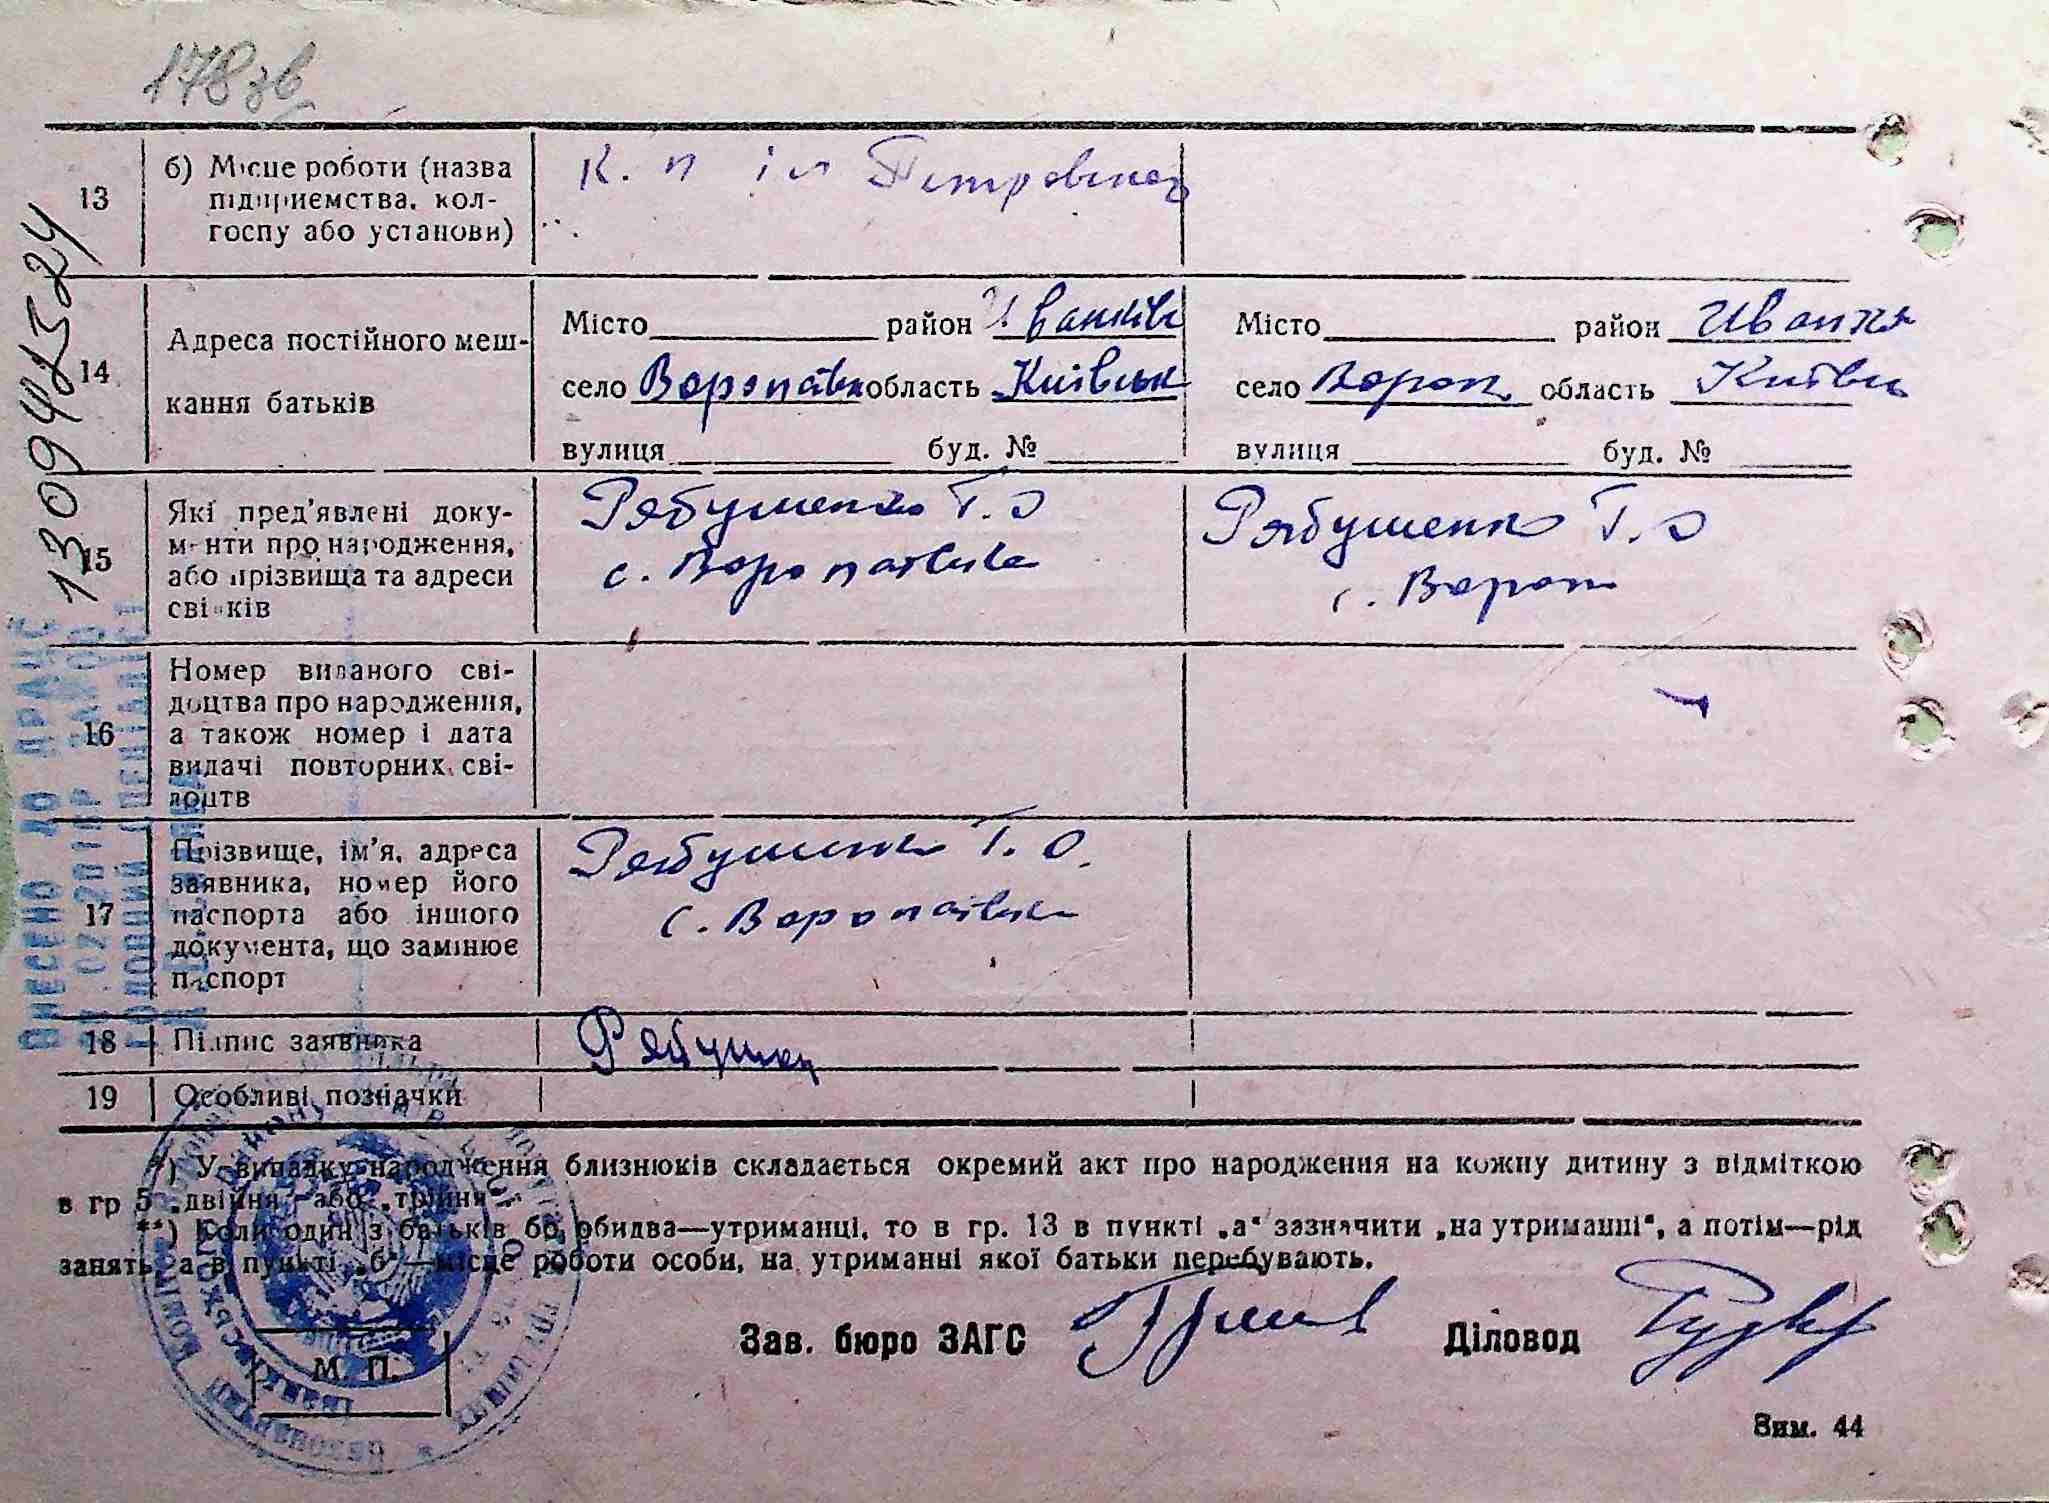 178зв
13 б) Місце роботи (назва підприємства, колгоспу або установи)
К. п ім Петровськ
14 Адреса постійного мешкання батьків
Місто район Іванків
село Воропаївк область Київськ
вулиця буд. №
Місто район Иванкв
село Вороп область Київськ
вулиця буд. №
15 Які пред'явлені документи про народження, або прізвища та адреси свідків
Рябушенко Т. О
с. Воропаївка
Рябушенко Т. О
с. Вороп
16 Номер виданого свідоцтва про народження, а також номер і дата видачі повторних свідоцтв
17 Прізвище, ім'я, адреса заявника, номер його паспорта або іншого документа, що замінює паспорт
Рябушенко Т. О.
с. Воропаївка
18 Підпис заявника
Рябушен
19 Особливі позначки
*) У випадку народження близнюків складається окремий акт про народження на кожну дитину з відміткою
в гр 5 „двійня" або „трійня".
**) Коли один з батьків бо обидва—утриманці, то в гр. 13 в пункті „а" зазначити „на утриманні", а потім—рід
занять, а в пункті „б"—місце роботи особи, на утриманні якої батьки перебувають.
Зав. бюро ЗАГС
Діловод
М. П.
Зим. 44
ВНЕСЕНО ДО ДРАЦС